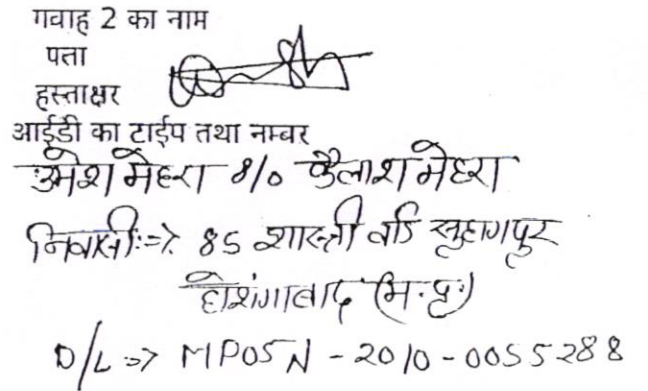 गवाह 2 का नाम
पता
हस्ताक्षर
आईडी का टाईप तथा नम्बर
उमेश मेहरा S/o कैलाश मेहरा
निवासी:=> 85 शास्त्री वार्ड सुहागपुर
होशंगाबाद (म.प्र.)
D/L => MP05N-2010-0055288